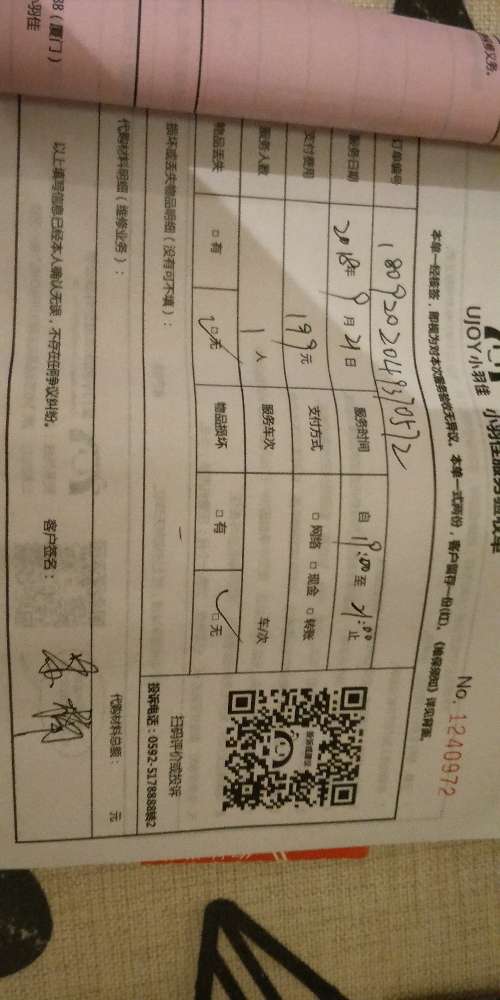 小羽佳服务验收单
UJOY小羽佳
No. 1240972
本单一经接签，即视为对本次服务验收无异议。本单一式两份，客户留存一份(红)。《维保须知》详见背面。
订单编号 1809202049370572
服务日期 2018年 9月 21日 服务时间 自 19:00 至 21:00 止
支付费用 199元 支付方式 □ 网络 □ 现金 □ 转账
服务人数 1 人 服务车次 车/次
物品丢失 □ 有 □ 无 物品损坏 □ 有 □ 无
损坏或丢失物品明细（没有可不填）：
扫码评价或投诉
投诉电话：0592-5178888转2
代购材料明细（维修业务）： 代购材料总额： 元
以上填写信息已经本人确认无误，不存在任何争议纠纷。 客户签名：
88（厦门）
小羽佳